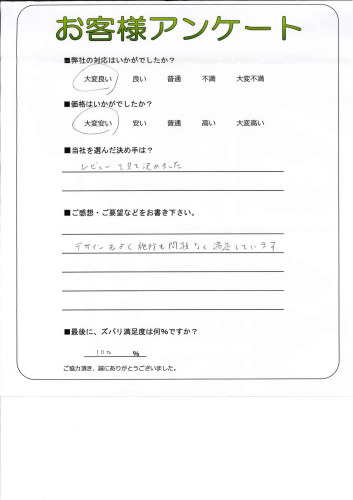 お客様アンケート
■弊社の対応はいかがでしたか？
大変良い 良い 普通 不満 大変不満
■価格はいかがでしたか？
大変安い 安い 普通 高い 大変高い
■当社を選んだ決め手は？
レビューで見て決めました
■ご感想・ご要望などをお書き下さい。
デザインもよく 問題なく満足しています
■最後に、ズバリ満足度は何%ですか？
100 %
ご協力頂き、誠にありがとうございました。